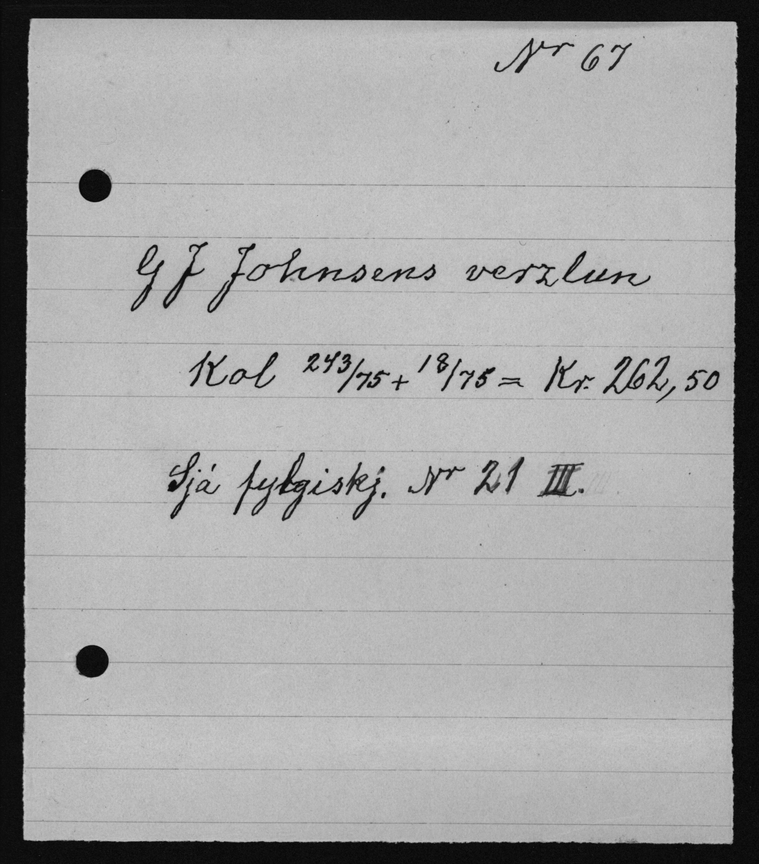 Nr 67
G J Johnsens verzlun
Kol 243/75 + 18/75 = Kr. 262,50
Sjá fylgiskj. Nr 21 III.